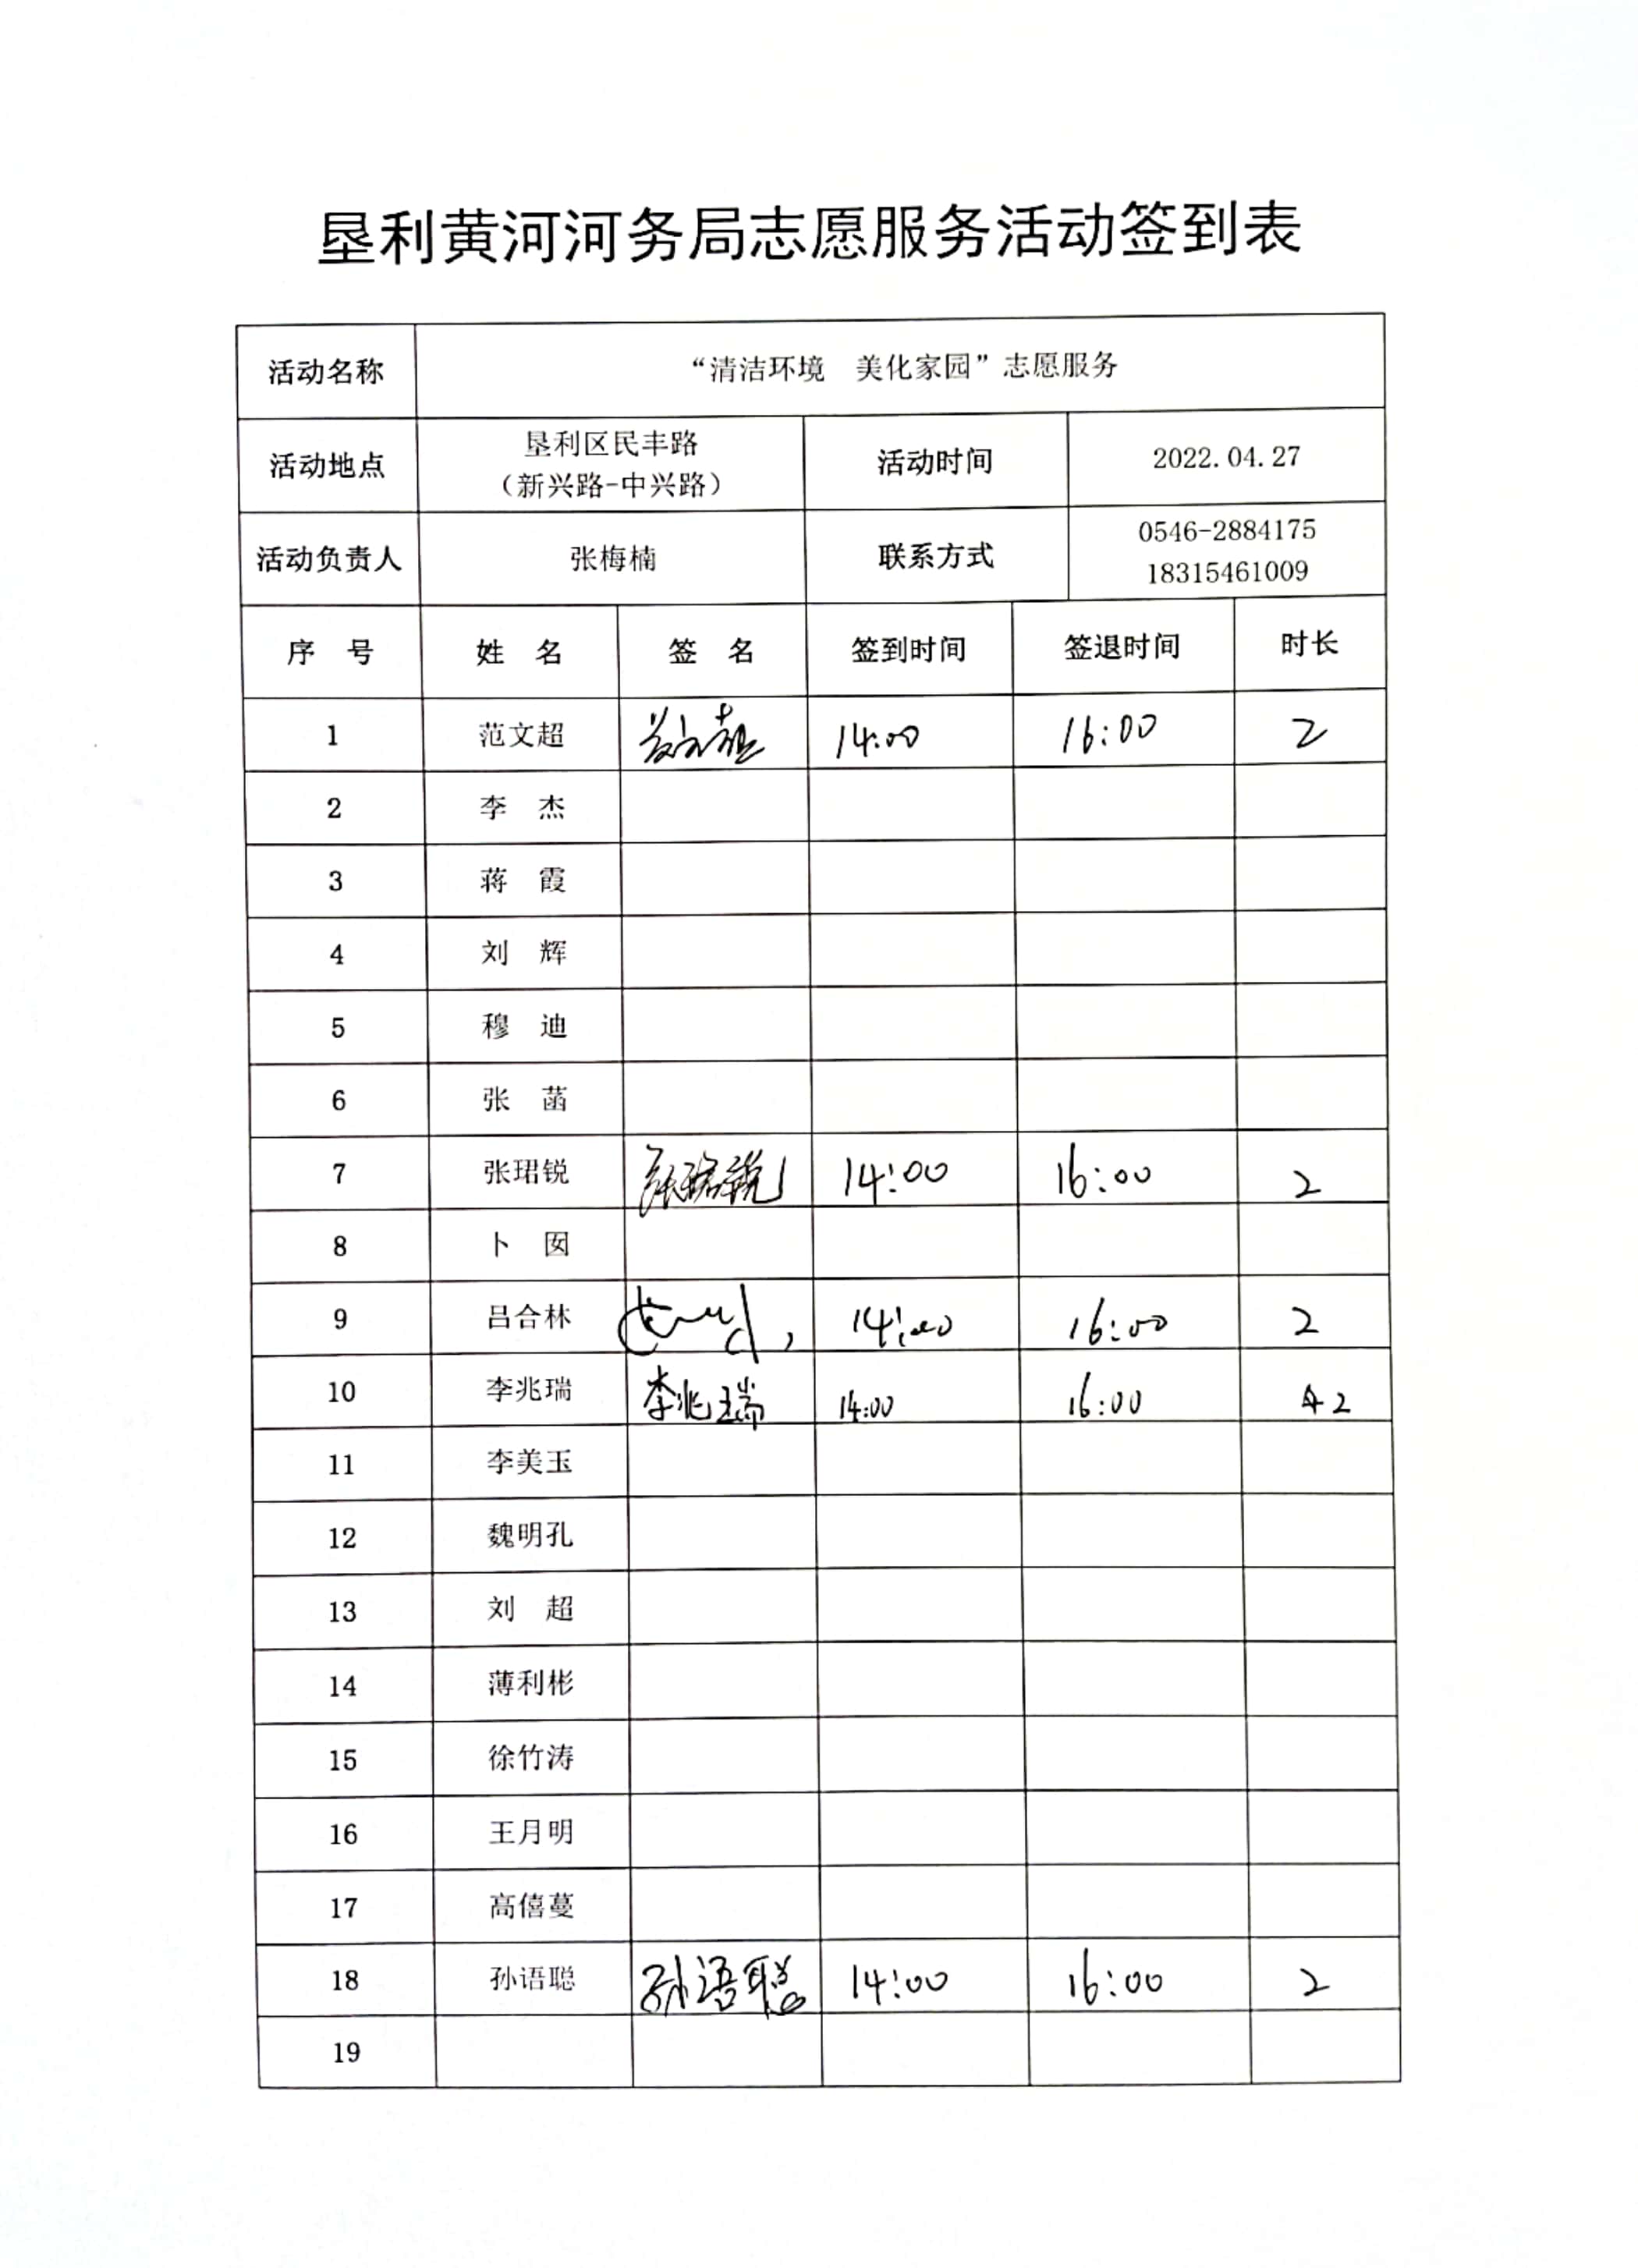 垦利黄河河务局志愿服务活动签到表
活动名称 “清洁环境 美化家园”志愿服务
活动地点 垦利区民丰路 （新兴路-中兴路） 活动时间 2022.04.27
活动负责人 张梅楠 联系方式 0546-2884175 18315461009
序 号 姓 名 签 名 签到时间 签退时间 时长
1 范文超 范文超 14:00 16:00 2
2 李 杰
3 蒋 霞
4 刘 辉
5 穆 迪
6 张 菡
7 张珺锐 张珺锐 14:00 16:00 2
8 卜 囡
9 吕合林 14:00 16:00 2
10 李兆瑞 李兆瑞 14:00 16:00 2
11 李美玉
12 魏明孔
13 刘 超
14 薄利彬
15 徐竹涛
16 王月明
17 高僖蔓
18 孙语聪 孙语聪 14:00 16:00 2
19